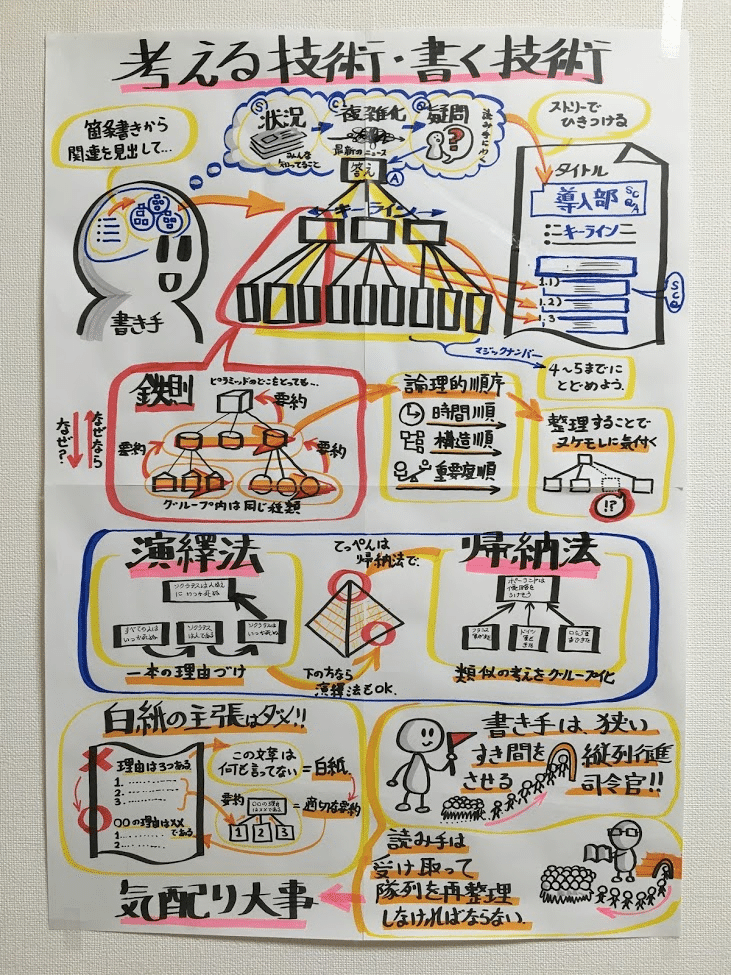 考える技術・書く技術
箇条書きから
関連を見出して…
S
状況
みんな
知ってること
C
複雑化
最新のニュース
Q
疑問
読み手にわく
答え
A
ストリーで
ひきつける
タイトル
導入部
S C
Q A
キーライン
キーライン
1.1)
1.2)
1.3
S
C
Q
書き手
マジックナンバー
4〜5までに
とどめよう.
なぜ?
なぜなら
鉄則
ピラミッドのどこをとっても…
要約
要約
要約
グループ内は同じ種類
論理的順序
時間順
構造順
重要度順
整理することで
ヌケモレに気付く
!?
演繹法
ソクラテスは人ゆえ
にいつか死ぬ
すべての人は
いつか死ぬ
ソクラテス
は人である
ソクラテスは
いつか死ぬ
一本の理由づけ
てっぺんは
帰納法で.
下の方なら
演繹法もOK.
帰納法
ポーランドは
フランス
ドイツ
類似の考えをグループ化
白紙の主張はダメ!!
理由は3つある
1.
2.
3.
〇〇の理由はダメ
である
1.
2.
この文章は
何も言ってない
=白紙
要約
〇〇の理由
はダメである
=適切な要約
1 2 3
書き手は、狭い
すき間を
縦列行進
させる
司令官!!
読み手は
受け取って
隊列を再整理
しなければならない.
気配り大事